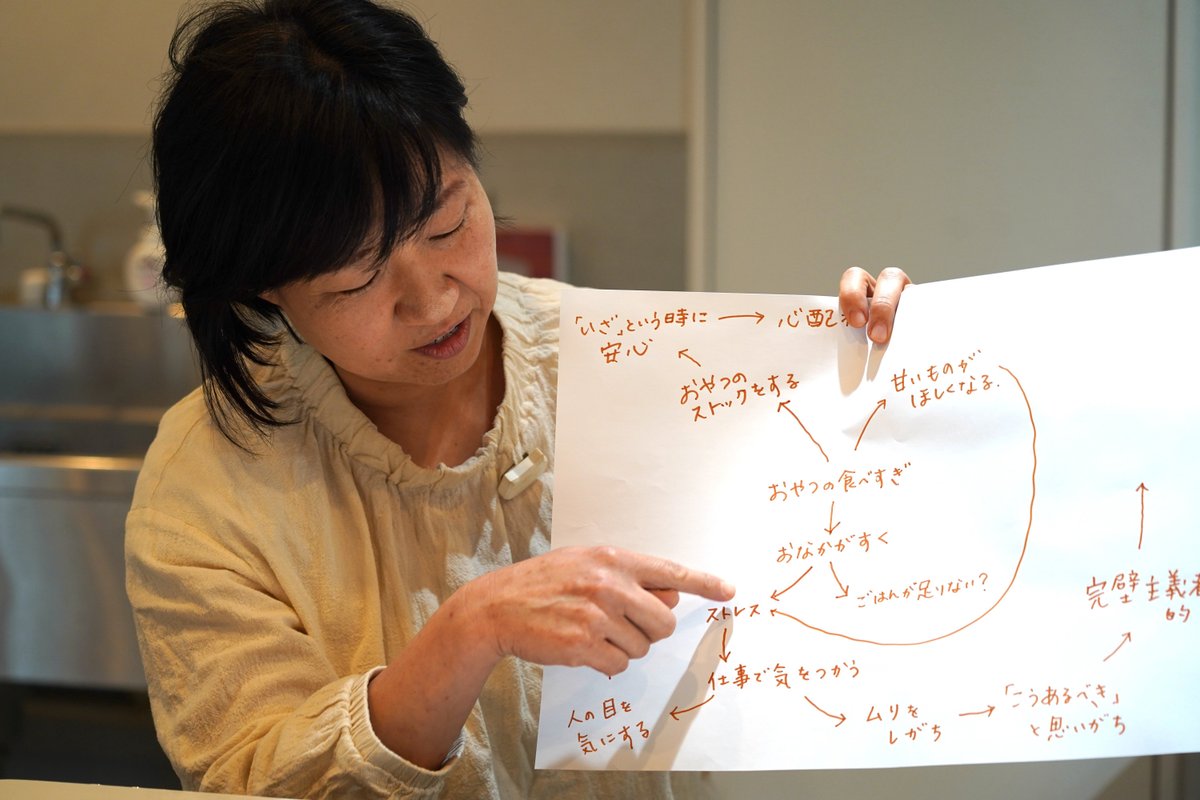 「いざ」という時に
安心
心配
おやつの
ストックをする
甘いものが
ほしくなる.
おやつの食べすぎ
おなかがすく
ごはんが足りない?
ストレス
仕事で気をつかう
人の目を
気にする
ムリを
しがち
「こうあるべき」
と思いがち
完璧主義者
的